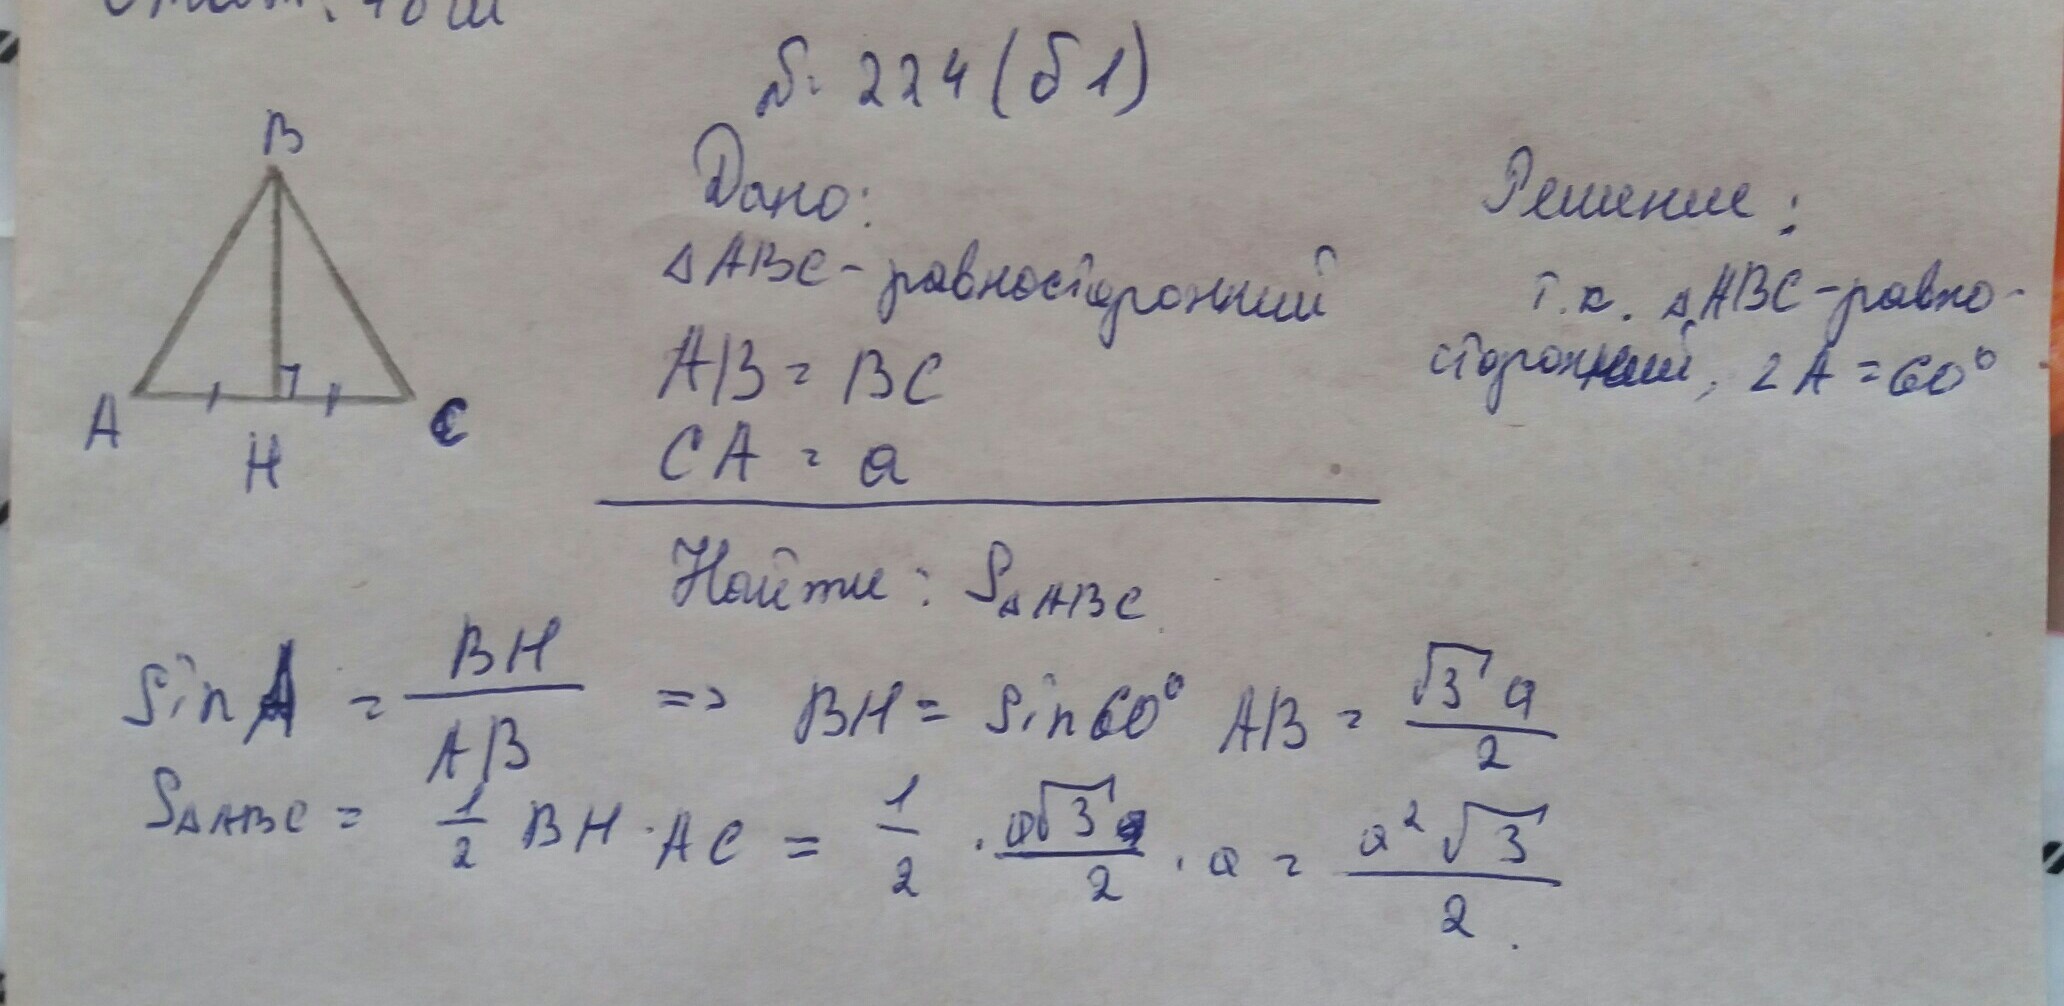 № 224 (б1)
B
A
H
C
Дано:
△ABC - равносторонний
AB = BC
CA = a
Найти: S△ABC
Решение:
т.к. △ABC - равно-
сторонний, ∠A = 60°
sin A = BH/AB => BH = sin 60° AB = √3 a/2
S△ABC = 1/2 BH · AC = 1/2 · a√3/2 · a = a²√3/2.